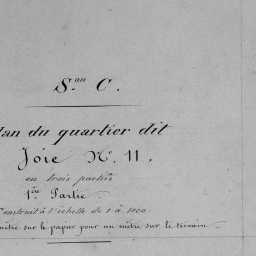 S.on C.
lan du quartier dit
Joie N.° 11.
en trois parties
1.ère Partie
Construit à l'échelle de 1 à 1000
mètre sur le papier pour un mètre sur le terrain.